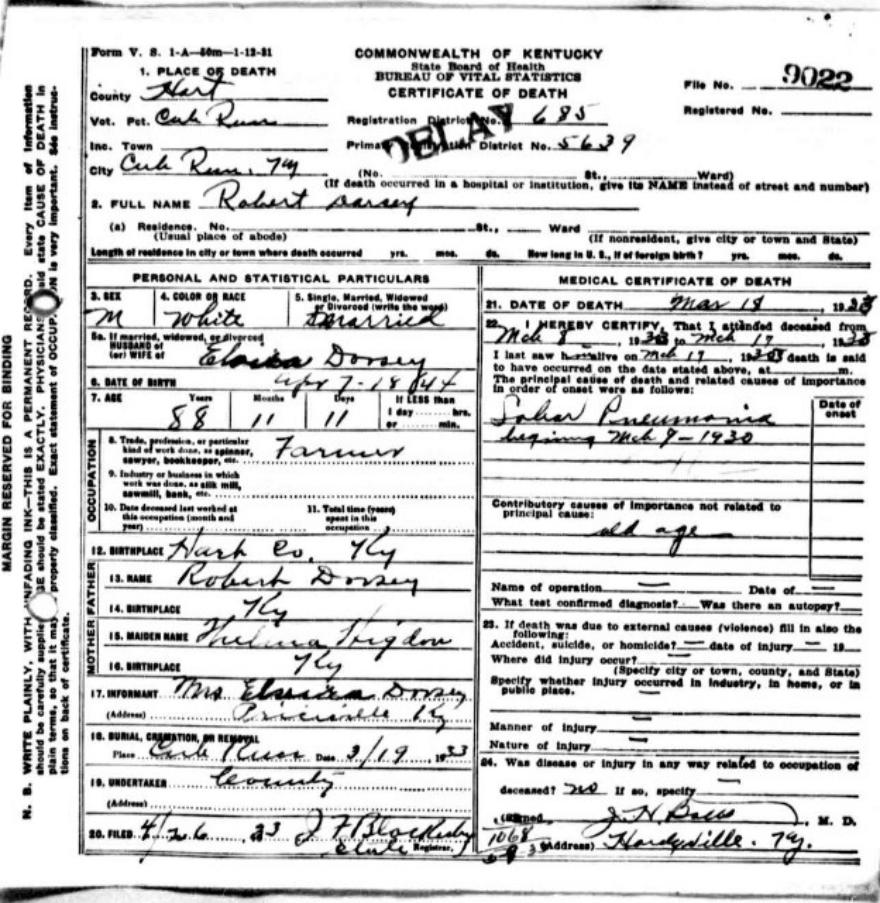 Form V. S. 1-A—50m—1-12-31
COMMONWEALTH OF KENTUCKY
State Board of Health
BUREAU OF VITAL STATISTICS
CERTIFICATE OF DEATH
File No. 9022
Registered No.
1. PLACE OF DEATH
County Hart
Vot. Pct. Cub Run
Registration District No. 685
DELAY
Inc. Town
Primary Registration District No. 5639
City Cub Run, Ky
(No. St., Ward)
(If death occurred in a hospital or institution, give its NAME instead of street and number)
2. FULL NAME Robert Dorsey
(a) Residence. No. St., Ward
(Usual place of abode) (If nonresident, give city or town and State)
Length of residence in city or town where death occurred yrs. mos. ds. How long in U. S., if of foreign birth? yrs. mos. ds.
PERSONAL AND STATISTICAL PARTICULARS
3. SEX 4. COLOR OR RACE 5. Single, Married, Widowed or Divorced (write the word)
M White Married
5a. If married, widowed, or divorced
HUSBAND of
(or) WIFE of Dorsey
6. DATE OF BIRTH Apr 7-1844
7. AGE Years Months Days If LESS than
88 11 11 1 day hrs.
or min.
OCCUPATION
8. Trade, profession, or particular
kind of work done, as spinner,
sawyer, bookkeeper, etc. Farmer
9. Industry or business in which
work was done, as silk mill,
sawmill, bank, etc.
10. Date deceased last worked at
this occupation (month and
year)
11. Total time (years)
spent in this
occupation
12. BIRTHPLACE Hart Co. Ky
FATHER
13. NAME Robert Dorsey
14. BIRTHPLACE Ky
MOTHER
15. MAIDEN NAME Thelma Higdon
16. BIRTHPLACE Ky
17. INFORMANT Mrs Dorsey
(Address) Ky
18. BURIAL, CREMATION, OR REMOVAL
Place Cub Run Date 3/19 1933
19. UNDERTAKER County
(Address)
20. FILED 4/26 33 J F
Registrar.
MEDICAL CERTIFICATE OF DEATH
21. DATE OF DEATH Mar 18 19
22. I HEREBY CERTIFY, That I attended deceased from
Mch 8, 19 to Mch 17, 19
I last saw h alive on Mch 17, 19 death is said
to have occurred on the date stated above, at m.
The principal cause of death and related causes of importance
in order of onset were as follows:
Date of
onset
Lobar Pneumonia
begining Mch 9-1930
Contributory causes of importance not related to
principal cause:
old age
Name of operation — Date of —
What test confirmed diagnosis? Was there an autopsy?
23. If death was due to external causes (violence) fill in also the
following:
Accident, suicide, or homicide? — date of injury — 19
Where did injury occur? —
(Specify city or town, county, and State)
Specify whether injury occurred in industry, in home, or in
public place. —
Manner of injury —
Nature of injury —
24. Was disease or injury in any way related to occupation of
deceased? no If so, specify —
(Signed) J. H. M. D.
1068
(Address) Hardyville. Ky.
MARGIN RESERVED FOR BINDING
N. B. WRITE PLAINLY, WITH UNFADING INK—THIS IS A PERMANENT RECORD. Every item of information
should be carefully supplied. AGE should be stated EXACTLY. PHYSICIANS should state CAUSE OF DEATH in
plain terms, so that it may be properly classified. Exact statement of OCCUPATION is very important. See instruc-
tions on back of certificate.